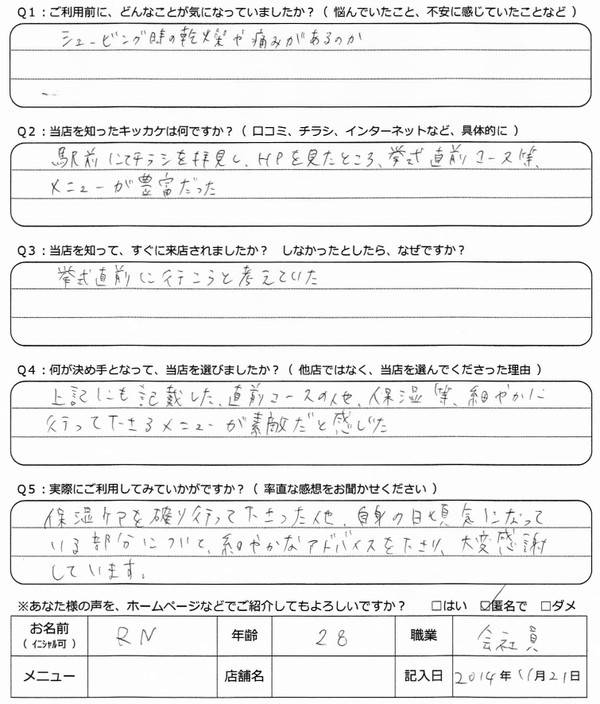 Q1：ご利用前に、どんなことが気になっていましたか？（ 悩んでいたこと、不安に感じていたことなど ）
シェービング時の乾燥や痛みがあるのか
Q2：当店を知ったキッカケは何ですか？（ 口コミ、チラシ、インターネットなど、具体的に ）
駅前にてチラシを拝見し、HPを見たところ、挙式直前コース等、
メニューが豊富だった
Q3：当店を知って、すぐに来店されましたか？　しなかったとしたら、なぜですか？
挙式直前に行こうと考えていた
Q4：何が決め手となって、当店を選びましたか？（ 他店ではなく、当店を選んでくださった理由 ）
上記にも記載した、直前コースの他、保湿等、細やかに
行って下さるメニューが素敵だと感じた
Q5：実際にご利用してみていかがですか？（ 率直な感想をお聞かせください ）
保湿ケアを確り行って下さった他、自身の日頃気になって
いる部分について、細やかなアドバイスを下さり、大変感謝
しています。
※あなた様の声を、ホームページなどでご紹介してもよろしいですか？　□はい　☑匿名で　□ダメ
お名前 RN 年齢 28 職業 会社員
（ イニシャル可 ）
メニュー 店舗名 記入日 2014年11月21日